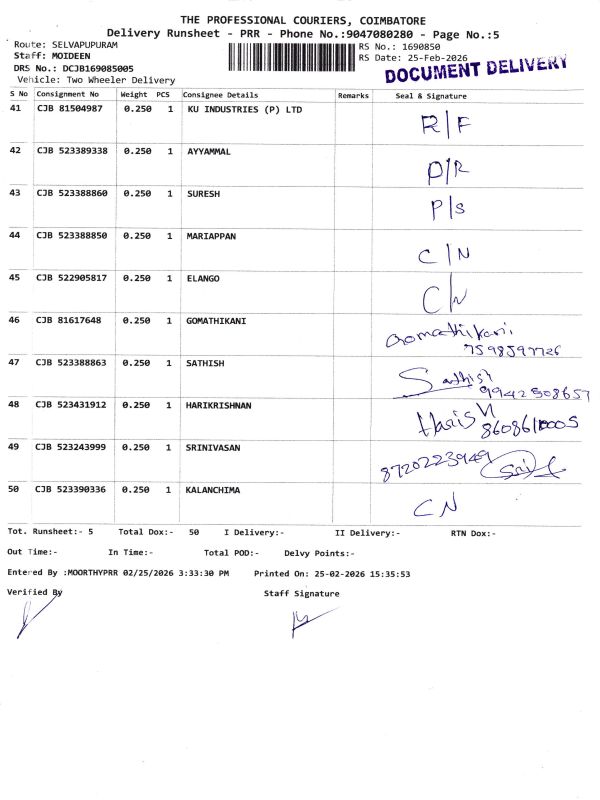 THE PROFESSIONAL COURIERS, COIMBATORE
Delivery Runsheet - PRR - Phone No.:9047080280 - Page No.:5
Route: SELVAPUPURAM
RS No.: 1690850
Staff: MOIDEEN
RS Date: 25-Feb-2026
DRS No.: DCJB169085005
DOCUMENT DELIVERY
Vehicle: Two Wheeler Delivery
S No Consignment No Weight PCS Consignee Details Remarks Seal & Signature
41 CJB 81504987 0.250 1 KU INDUSTRIES (P) LTD R/F
42 CJB 523389338 0.250 1 AYYAMMAL D/R
43 CJB 523388860 0.250 1 SURESH P/S
44 CJB 523388850 0.250 1 MARIAPPAN C/N
45 CJB 522905817 0.250 1 ELANGO C/N
46 CJB 81617648 0.250 1 GOMATHIKANI Gomathikani
7598597726
47 CJB 523388863 0.250 1 SATHISH Sathish
9942508657
48 CJB 523431912 0.250 1 HARIKRISHNAN
49 CJB 523243999 0.250 1 SRINIVASAN 8720223949
50 CJB 523390336 0.250 1 KALANCHIMA CN
Tot. Runsheet:- 5 Total Dox:- 50 I Delivery:- II Delivery:- RTN Dox:-
Out Time:- In Time:- Total POD:- Delvy Points:-
Entered By :MOORTHYPRR 02/25/2026 3:33:30 PM Printed On: 25-02-2026 15:35:53
Verified By Staff Signature